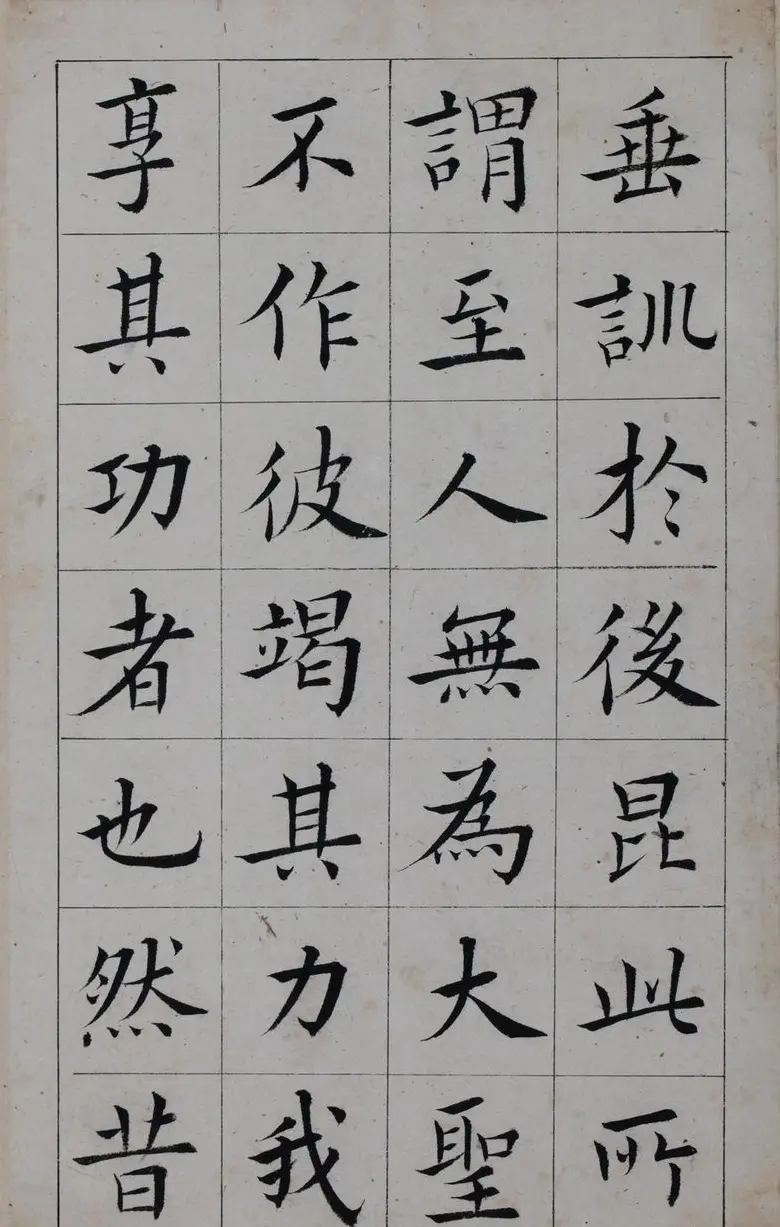 垂訓於後昆此所
謂至人無為大聖
不作彼竭其力我
享其功者也然昔